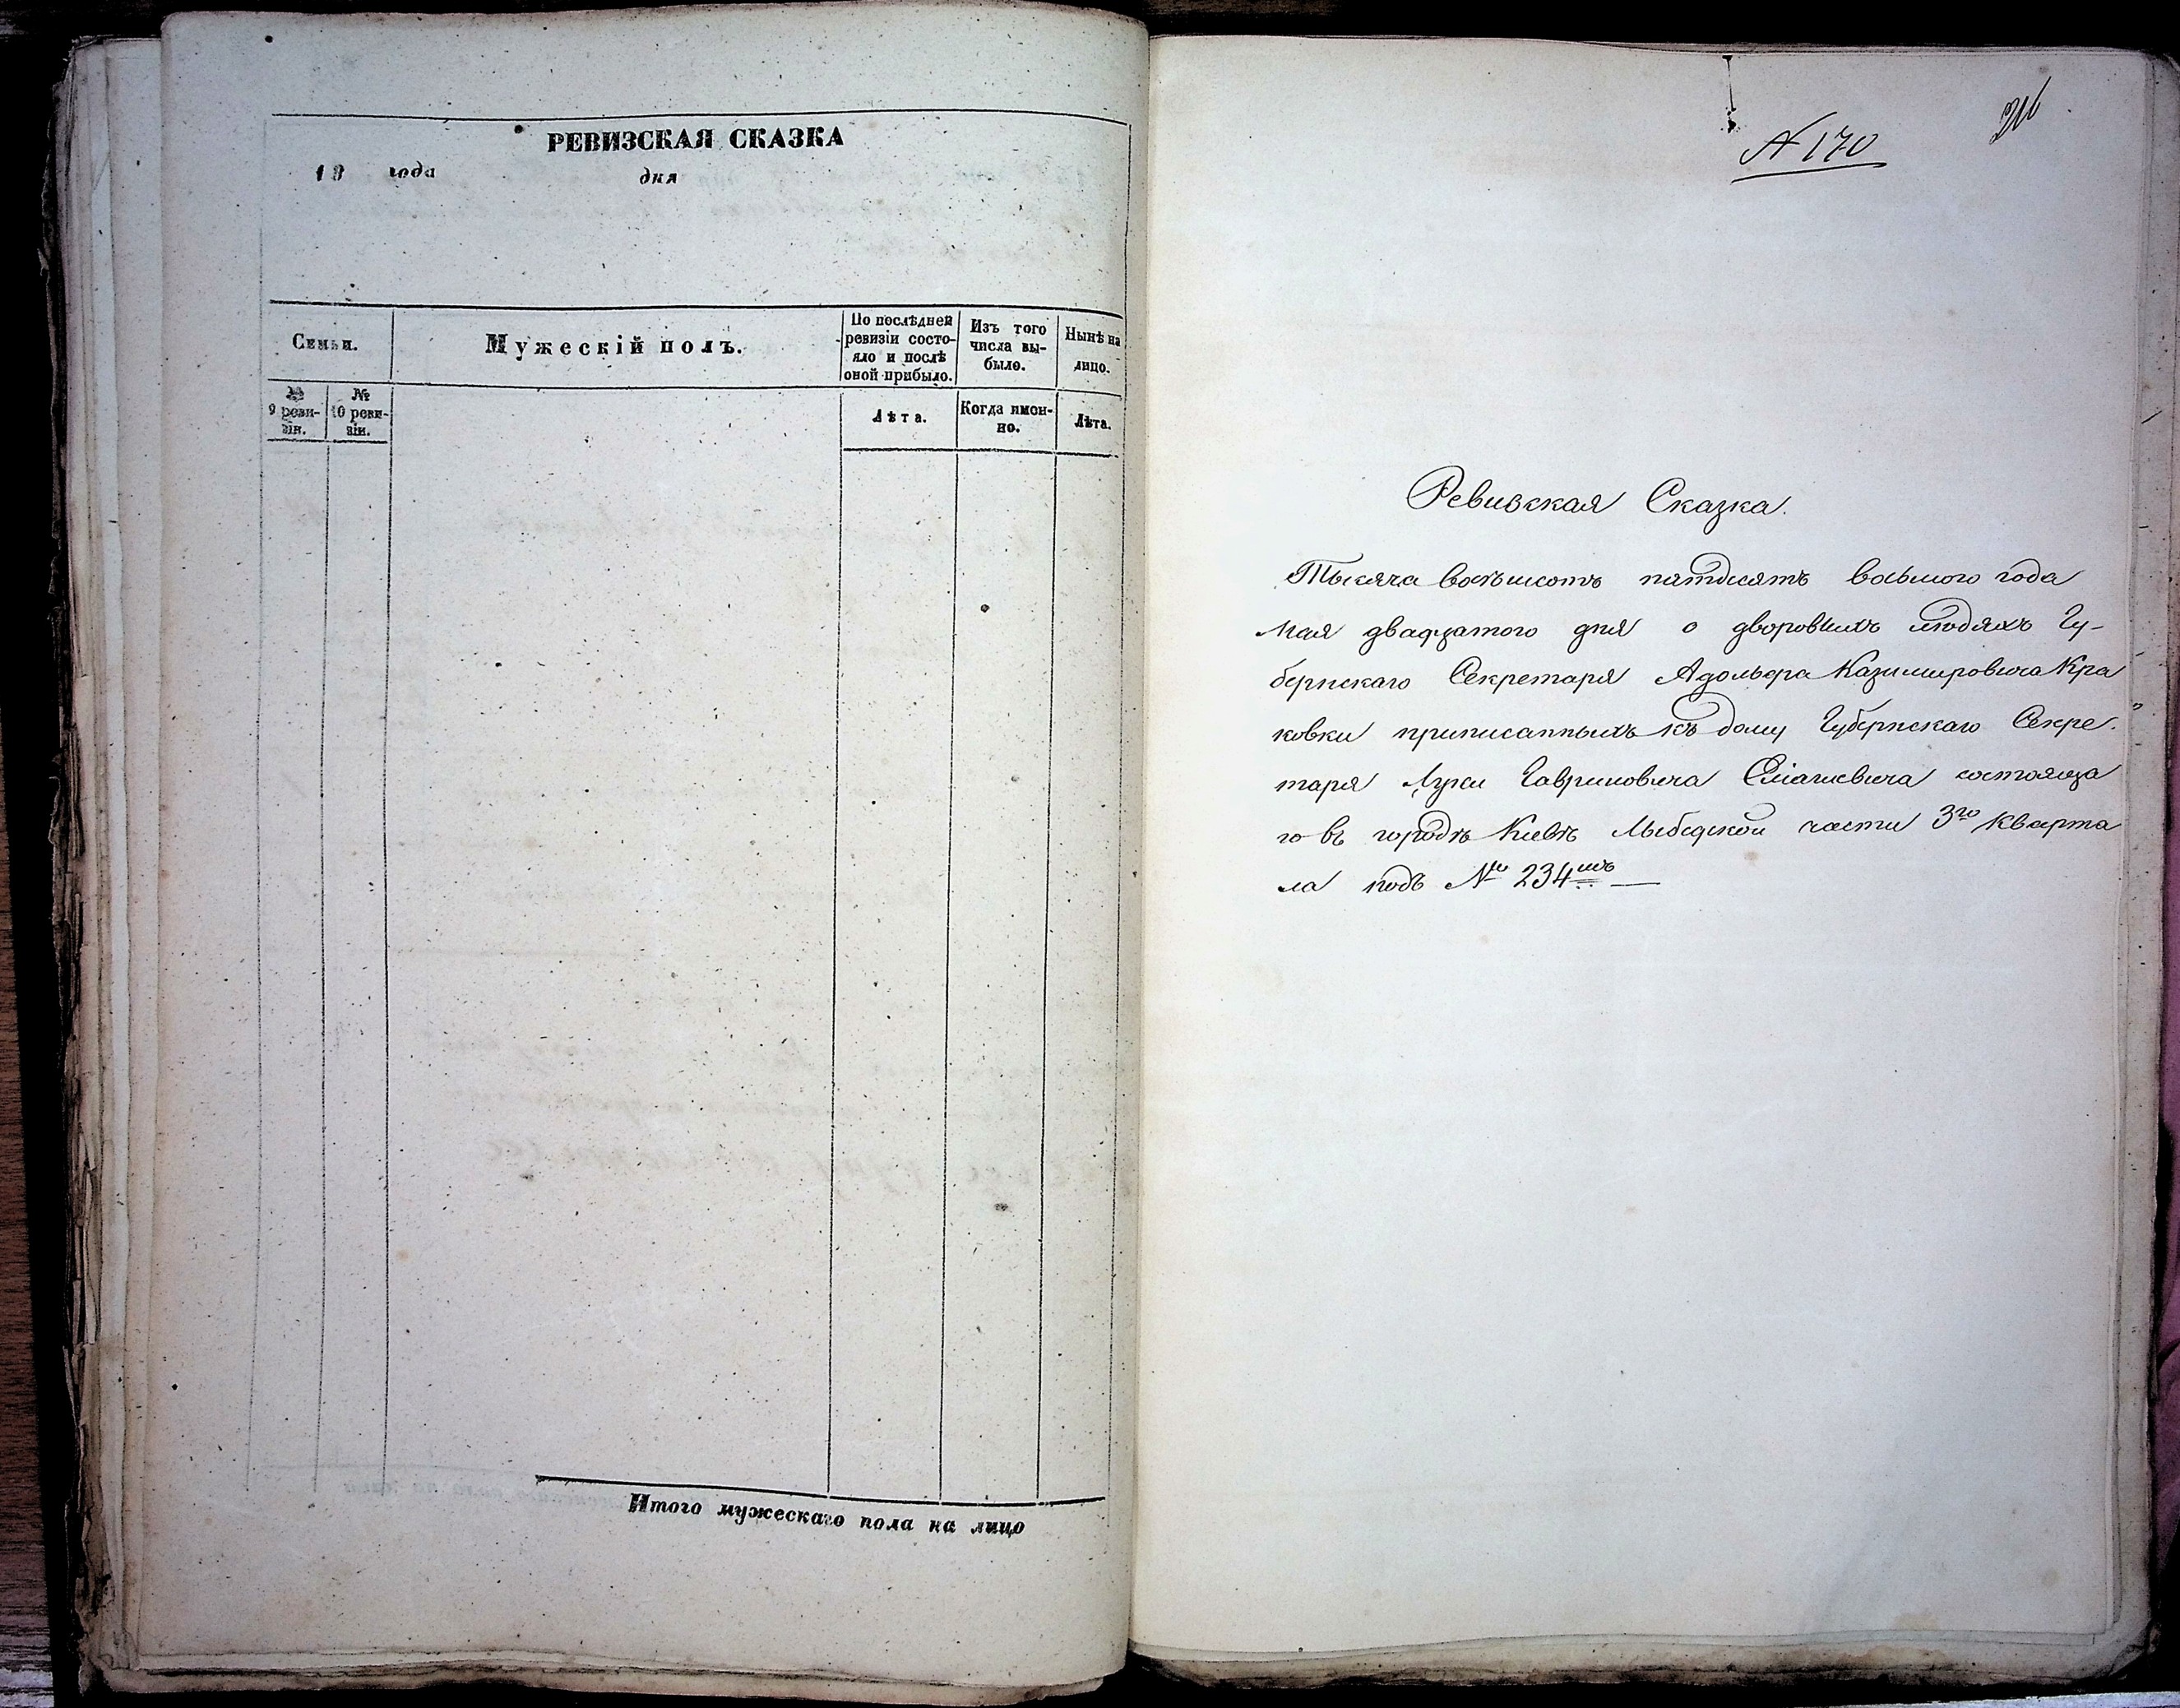 РЕВИЗСКАЯ СКАЗКА
18 года дня
Семьи.
Мужескій полъ.
По послѣдней ревизіи состояло и послѣ оной прибыло.
Изъ того числа выбыло.
Нынѣ на лицо.
№ 9 ревизіи.
№ 10 ревизіи.
Лѣта.
Когда имонно.
Лѣта.
Итого мужескаго пола на лицо
№ 170
Ревизская Сказка.
Тысяча восѣмсотъ пятдисятъ восьмого года
Мая двадцатого дня о дворовыхъ людяхъ Гу-
бернскаго Секретаря Адольфа Казимировича Кра
ковки приписанныхъ къ дому Губернскаго Секре.
таря Луки Гавриловича состояща
го въ городѣ Кіевѣ Лыбедской части 3го кварта
ла подъ № 234мъ